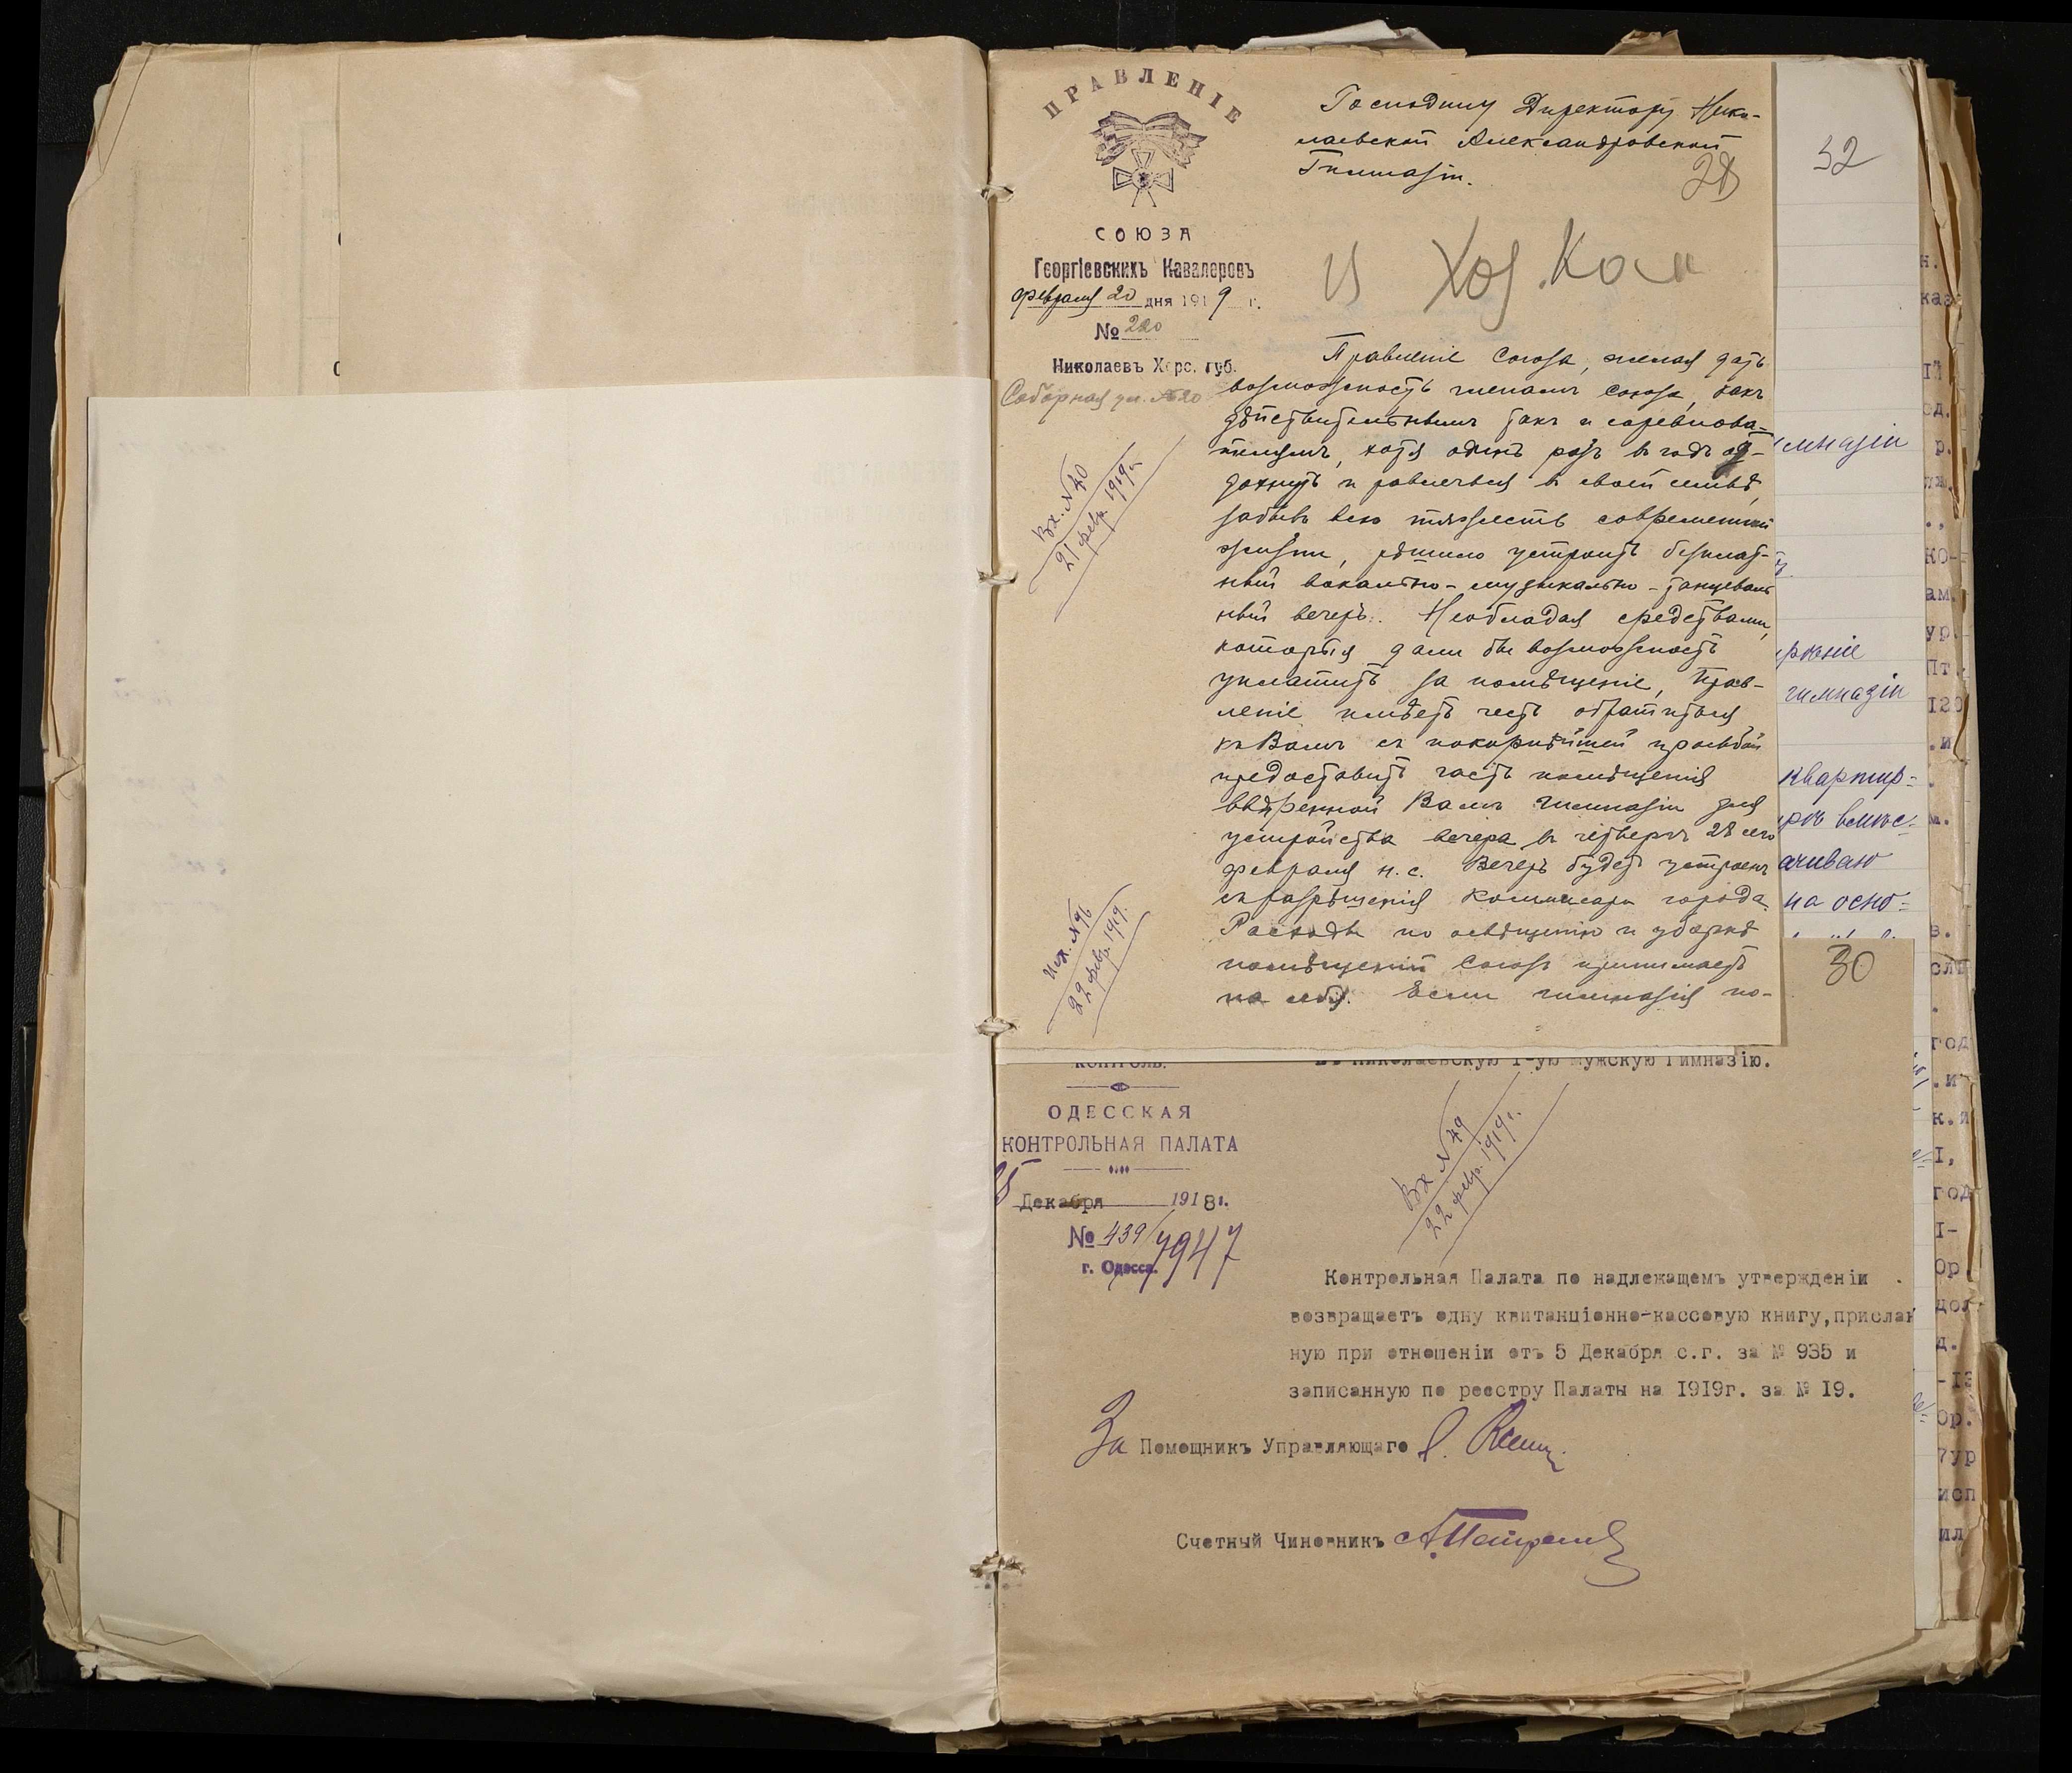 ПРАВЛЕНІЕ
СОЮЗА
Георгіевскихъ Кавалеровъ
Февраля 20 дня 1919 г.
№ 220
Николаевъ Херс. губ.
Соборная ул. № 20
Господину Директору Нико-
лаевской Александровской
Гимназіи.
28
Хоз. Ком
Вх. № 40
21 февр. 1919 г.
Исх. № 96
22 февр. 1919.
Правленіе Союза, желая дать
возможность членамъ союза, какъ
дѣйствительнымъ такъ и соревнова-
телямъ, хотя одинъ разъ въ годъ от-
дохнуть и развлечься въ своей семьѣ,
забывъ всю тяжесть современной
жизни, рѣшило устроить безплат-
ный вокально-музыкально-танцеваль
ный вечеръ. Необладая средствами,
которыя дали бы возможность
уплатить за помѣщеніе, Прав-
леніе имѣетъ честь обратиться
къ Вамъ съ покорнѣйшей просьбой
предоставить часть помѣщенія
ввѣренной Вамъ гимназіи для
устройства вечера въ четвергъ 28 сего
февраля н.с. Вечеръ будетъ устроенъ
съ разрѣшенія Коммисара города.
Расходы по освѣщенію и уборкѣ
помѣщеній Союзъ принимаетъ
на себя. Если гимназія по-
32
имназіи
гимназіи
квартир=
ачиваю
на осно=
30
КОНТРОЛЬ.
ОДЕССКАЯ
КОНТРОЛЬНАЯ ПАЛАТА
Декабря 1918г.
№ 439/7947
г. Одесса.
Въ Николаевскую 1-ую мужскую Гимназію.
Вх № 49
22 февр. 1919 г.
Контрольная Палата по надлежащемъ утвержденіи
возвращаетъ одну квитанціонно-кассовую книгу, прислан
ную при отношеніи отъ 5 Декабря с.г. за № 935 и
записанную по реестру Палаты на 1919г. за № 19.
За Помощникъ Управляющаго
Счетный Чиновникъ